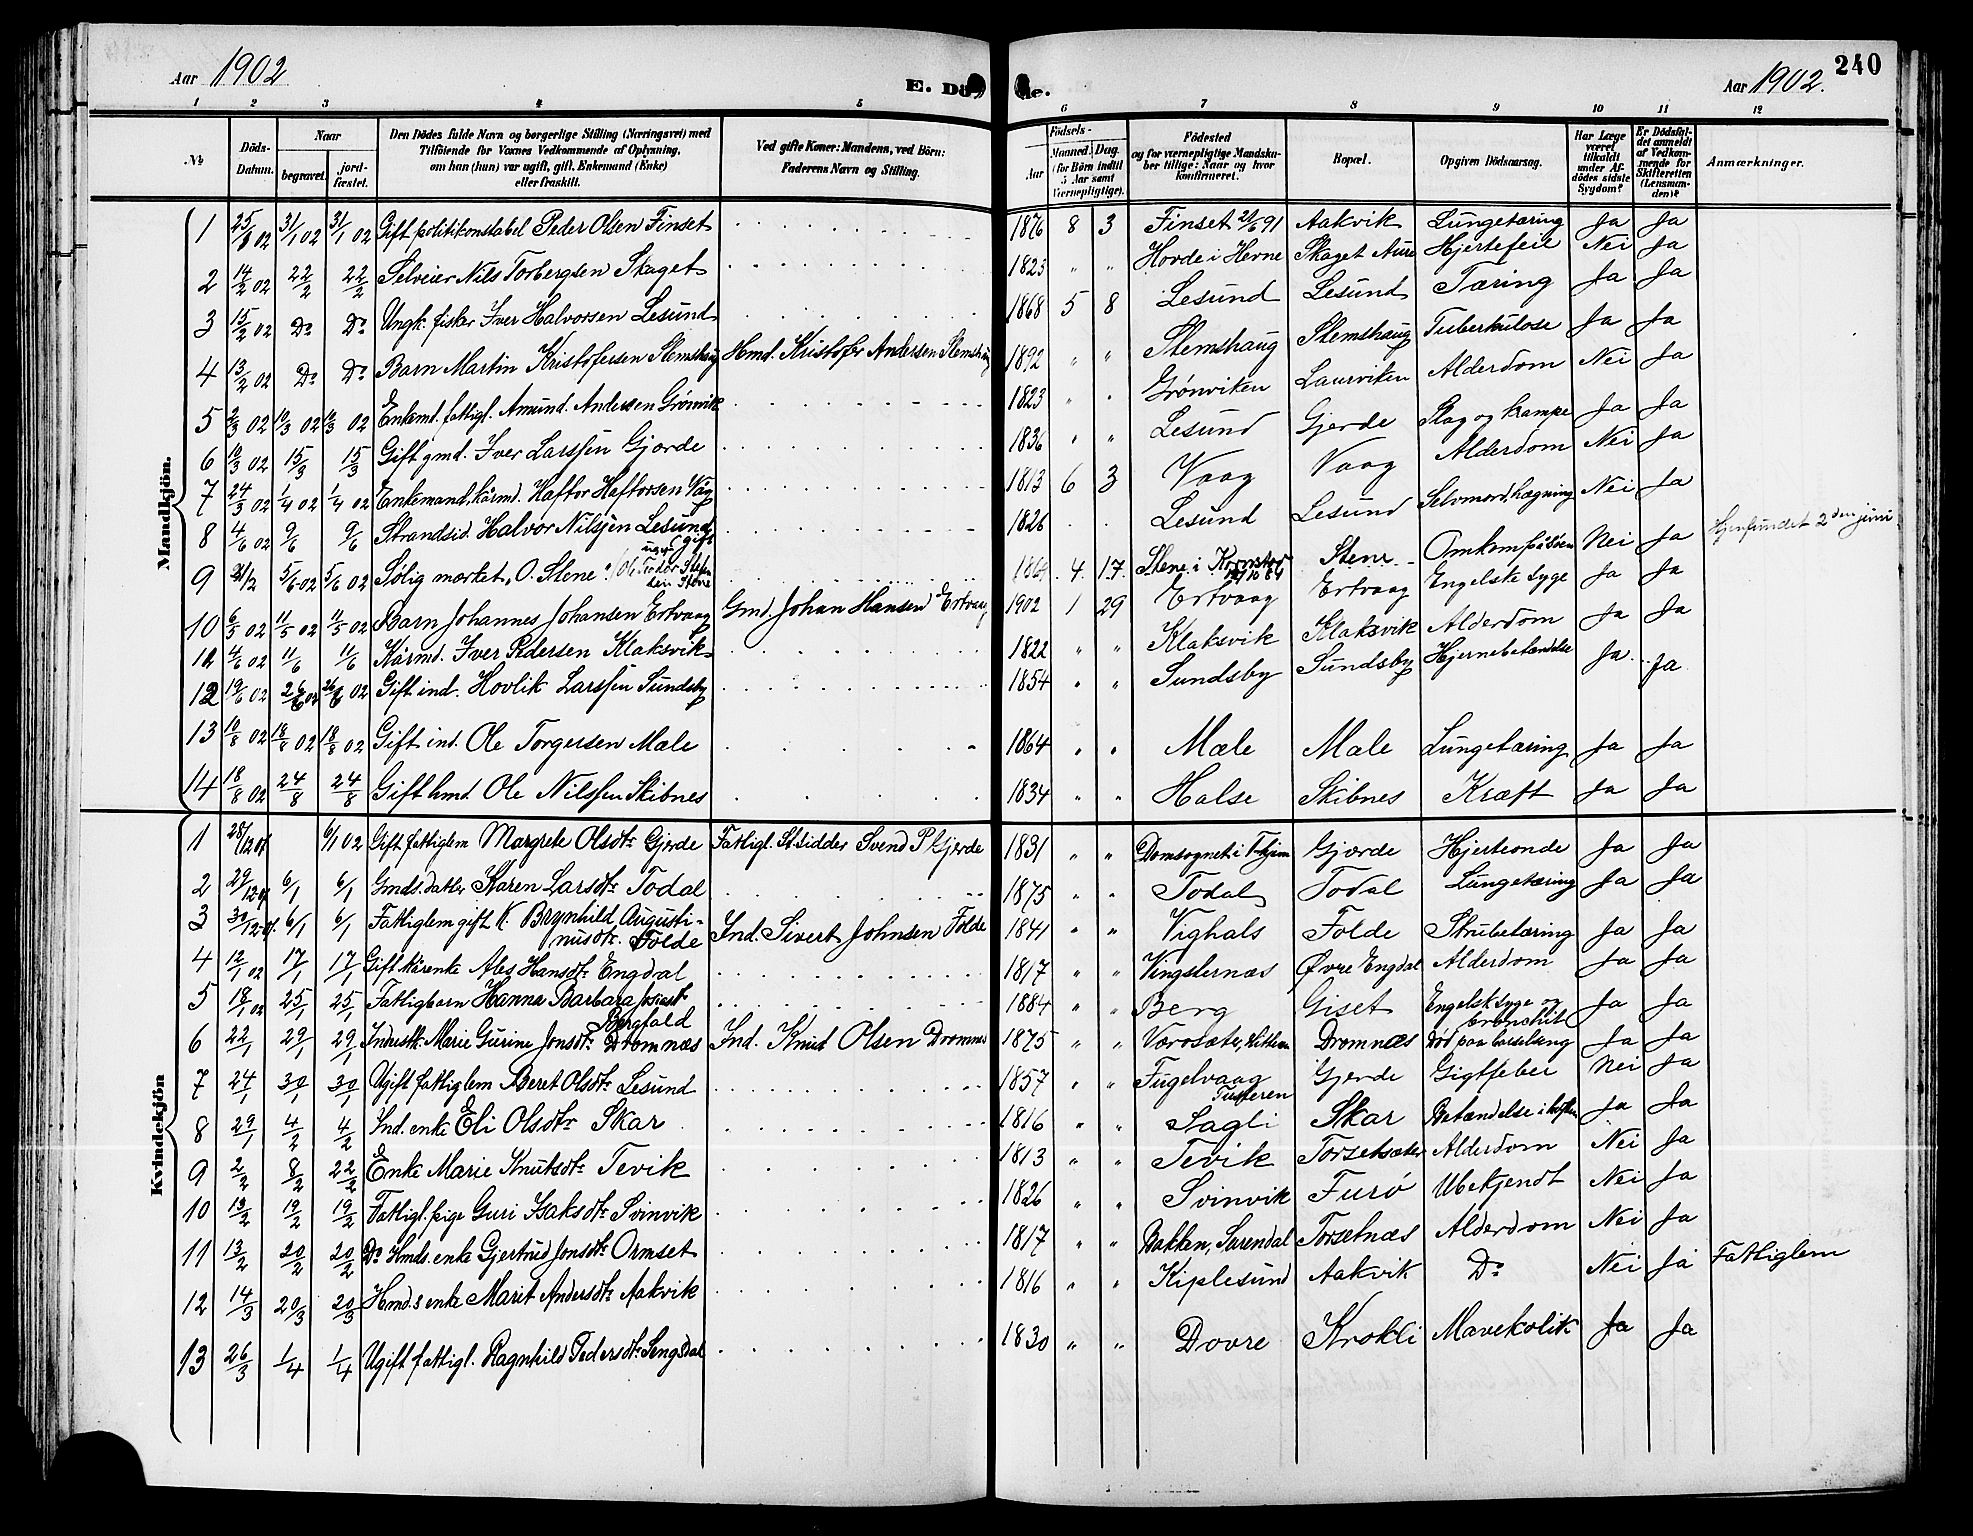 Aar 1902
E. Dö de.
Aar 1902.
240
1 2 3 4 5 6 7 8 9 10 11 12
№
Döds-Datum.
Naar
begravet.
jord-fæstet.
Den Dödes fulde Navn og borgerlige Stilling (Næringsvei) med
Tilföiende for Voxnes Vedkommende af Oplysning,
om han (hun) var ugift, gift, Enkemand (Enke)
eller fraskilt.
Ved gifte Koner: Mandens, ved Börn:
Faderens Navn og Stilling.
Födsels-
Aar
Maaned. Dag.
(for Börn indtil
5 Aar samt
Værnepligtige).
Födested
og for værnepligtige Mandska-
ber tillige: Naar og hvor
konfirmeret.
Bopæl.
Opgiven Dödsaarsag.
Har Læge
været
tilkaldt
under Af-
dödes sidste
Sygdom?
Er Dödsfal-
det anmeldt
af Vedkom-
mende for
Skifteretten
(Lensman-
den)?
Anmærkninger.
Mandkjön.
1 25/1 02 31/1 02 31/1 02 Gift politikonstabel Peder Olsen Finset 1876 8 3 Finset 21/6 91 Aakvik Lungetæring Ja Ja
2 14/2 02 22/2 22/2 Selveier Nils Torbergsen Skaget 1823 " " Hovde i Hevne Skaget Aure Hjertefeil Nei Ja
3 15/2 02 Do Do Ungk. fisker Iver Halvorsen Lesund 1868 5 8 Lesund Lesund Tæring Ja Ja
4 13/2 02 Do Do Barn Martin Kristofersen Stemshaug Hmd. Kristofer Andersen Stemshaug 1892 " " Stemshaug Stemshaug Tuberkulose Ja Ja
5 2/3 02 10/3 02 10/3 02 Enkemd. fattigl. Amund Andersen Grönvik 1823 " " Grönviken Laurviken Alderdom Nei Ja
6 10/3 02 15/3 15/3 Gift gmd. Iver Larssen Gjerde 1836 " " Lesund Gjerde Slag og krampe Ja Ja
7 24/3 02 1/4 02 1/4 02 Enkemand, kårmd. Haftor Haftorsen Våg 1813 6 3 Vaag Vaag Alderdom Nei Ja
8 4/6 02 9/6 9/6 Strandsid. Halvor Nilssen Lesund gift 1826 Lesund Lesund Selvmord, hægning Nei Ja
9 5/6 02 5/6 02 Sølig mærket „O. Stene" 4 17 Stene i Kornstad Stene Omkom på søen Nei Ja Gjenfundet 2den juni
10 6/5 02 11/5 02 11/5 02 Barn Johannes Johansen Ertvaag Gmd. Johan Hansen Ertvaag 1902 1 29 Ertvaag Ertvaag Engelsk syge Ja Ja
11 4/6 02 11/6 11/6 Kårmd. Iver Pedersen Klaksvik 1822 " " Klaksvik Klaksvik Alderdom Ja Ja
12 19/6 02 26/6 02 26/6 02 Gift ind. Hovlik Larssen Sundsby 1854 " " Sundsby Sundsby Hjernebetændelse Ja Ja
13 10/8 02 18/8 02 18/8 02 Gift ind. Ole Torgersen Mæle 1864 " " Mæle Mæle Lungetæring Ja Ja
14 18/8 02 24/8 24/8 Gift hmd. Ole Nilssen Skibnes 1834 " " Halse Skibnes Kræft Ja Ja
Kvindekjön
1 28/12 01 6/1 02 Gift fattiglem Margrete Olsdtr Gjerde Fattigl. St.sidder Svend P Gjerde 1831 " " Domsognet i T-hjem Gjærde Hjerteonde Ja Ja
2 29/12 01 6/1 6/1 Gmds. datter Karen Larsdtr Todal 1875 " " Todal Todal Lungetæring Ja Ja
3 30/12 01 6/1 6/1 Fattiglem gift K. Brynhild Augusti-
nusdtr. Folde Ind. Sivert Johnsen Folde 1841 " " Vighals Folde Strubetæring Ja Ja
4 12/1 02 17/1 17/1 Gift kårenke Ales Hansdtr Engdal 1817 " " Vingsternæs Øvre Engdal Alderdom Ja Ja
5 18/1 02 25/1 25/1 Fattigbarn Hanna Barbara
Bergfald 1884 " " Berg Giset Engelsk syge og
bronchit Ja Ja
6 22/1 29/1 29/1 Inderstk. Marie Gurine Jonsdtr Dromnæs Ind. Knut Olsen Dromnes 1875 " " Værosæter, Hitteren Dromnæs Død paa barselseng Ja Ja
7 24/1 30/1 30/1 Ugift fattiglem Beret Olsdtr Lesund 1857 " " Fugelvaag
Tusteren Gjerde Gigtfeber Nei Ja
8 29/1 4/2 4/2 Ind. enke Eli Olsdtr Skar 1816 " " Sagli Skar Betændelse i hoften Ja Ja
9 2/2 8/2 22/2 Enke Marie Knutsdtr Tevik 1813 " " Tevik Torsetsæter Alderdom Nei Ja
10 13/2 19/2 19/2 Fattigl. pige Guri Isaksdtr Svinvik 1826 " " Svinvik Furö Ubekjendt Nei Ja
11 13/2 20/2 20/2 Do Hmds. enke Gjertrud Jonsdtr Ormset 1817 " " Bakken, Surendal Torsetnæs Alderdom Nei Ja
12 14/3 20/3 20/3 Hmd.s enke Marit Andersdtr Aakvik 1816 " " Kiplesund Aakvik Do Nei Ja Fattiglem
13 26/3 1/4 1/4 Ugift fattigl. Ragnhild Pedersdtr Lengsdal 1830 " " Dovre Krokli Mavekolik Ja Ja